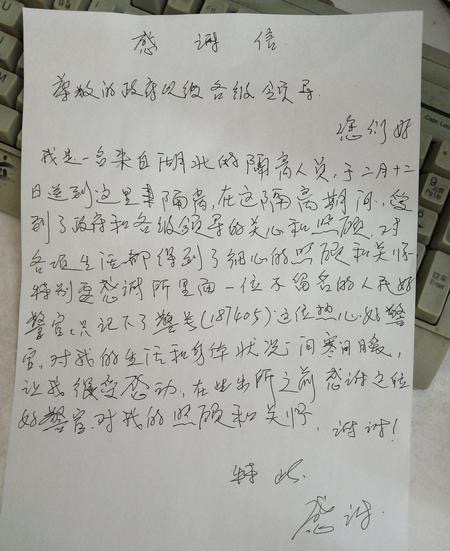 感谢信.
尊敬的政府以级各级领导.
您们好
我是一名来自湖北的隔离人员,于二月十二
日送到这里来隔离,在这隔离期间,受
到了政府和各级领导的关心和照顾,对
各项生活都得到了细心的照顾和关怀
特别要感谢所里面一位不留名的人民好
警官只记下了警号(187405)这位热心好警
官,对我的生活和身体状况问寒问暖,
让我很受感动,在出所之前感谢这位
好警官对我的照顾和关怀, 谢谢!
特此
感谢.